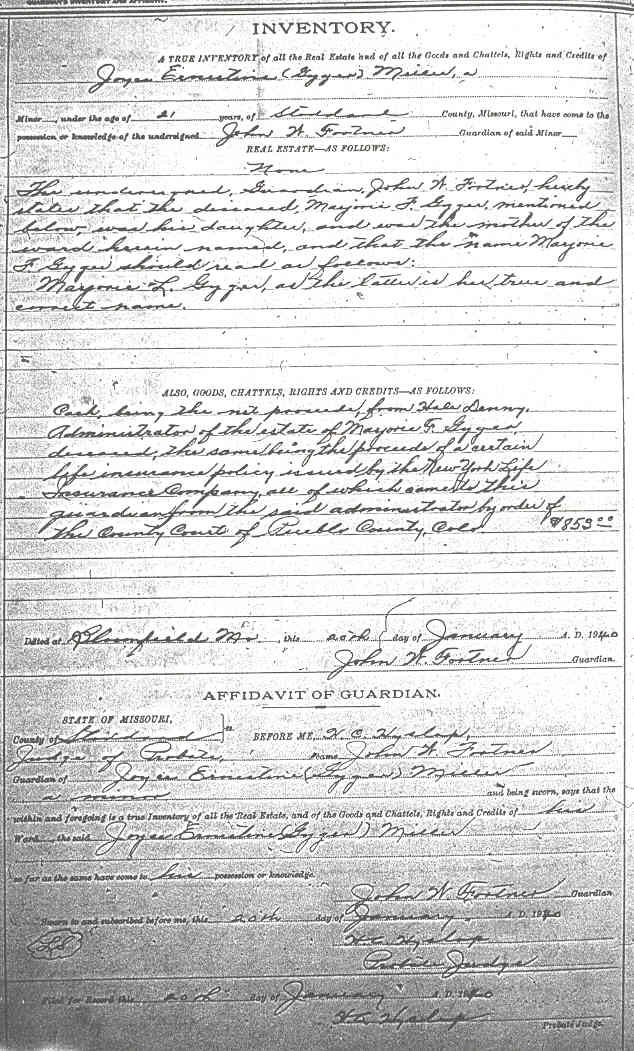 INVENTORY.
A TRUE INVENTORY of all the Real Estate and of all the Goods and Chattels, Rights and Credits of
Joyce Ernestine (Gygger) Miller, a
Minor, under the age of 21 years, of Stoddard County, Missouri, that have come to the
possession or knowledge of the undersigned John W. Fortner Guardian of said Minor
REAL ESTATE—AS FOLLOWS:
None
The undersigned, Guardian, John W. Fortner, hereby
states that the deceased, Marjorie F. Gygger, mentioned
below, was his daughter, and was the mother of the
ward herein named, and that the name Marjorie
F. Gygger should read as follows:
Marjorie L. Gygger, as the latter is her true and
correct name.
ALSO, GOODS, CHATTELS, RIGHTS AND CREDITS—AS FOLLOWS:
Cash, being the net proceeds, from Hale Denny,
Administrator of the estate of Marjorie F. Gygger
deceased, the same being the proceeds of a certain
life insurance policy issued by the New York Life
Insurance Company, all of which came to this
guardian from the said administrator by order of
the County Court of Pueblo County, Colo $853.00
Dated at Bloomfield Mo this 20th day of January A. D. 1940
John W. Fortner Guardian.
AFFIDAVIT OF GUARDIAN.
STATE OF MISSOURI,
County of Stoddard BEFORE ME, H. C. Hyslop,
Judge of Probate, came John W. Fortner
Guardian of Joyce Ernestine (Gygger) Miller
a minor and being sworn, says that the
within and foregoing is a true Inventory of all the Real Estate, and of the Goods and Chattels, Rights and Credits of his
Ward, the said Joyce Ernestine (Gygger) Miller
so far as the same have come to his possession or knowledge.
John W. Fortner Guardian
Sworn to and subscribed before me, this 20th day of January A. D. 1940
H C Hyslop
Probate Judge
Filed for Record this 20th day of January A. D. 1940
H C Hyslop
Probate Judge.